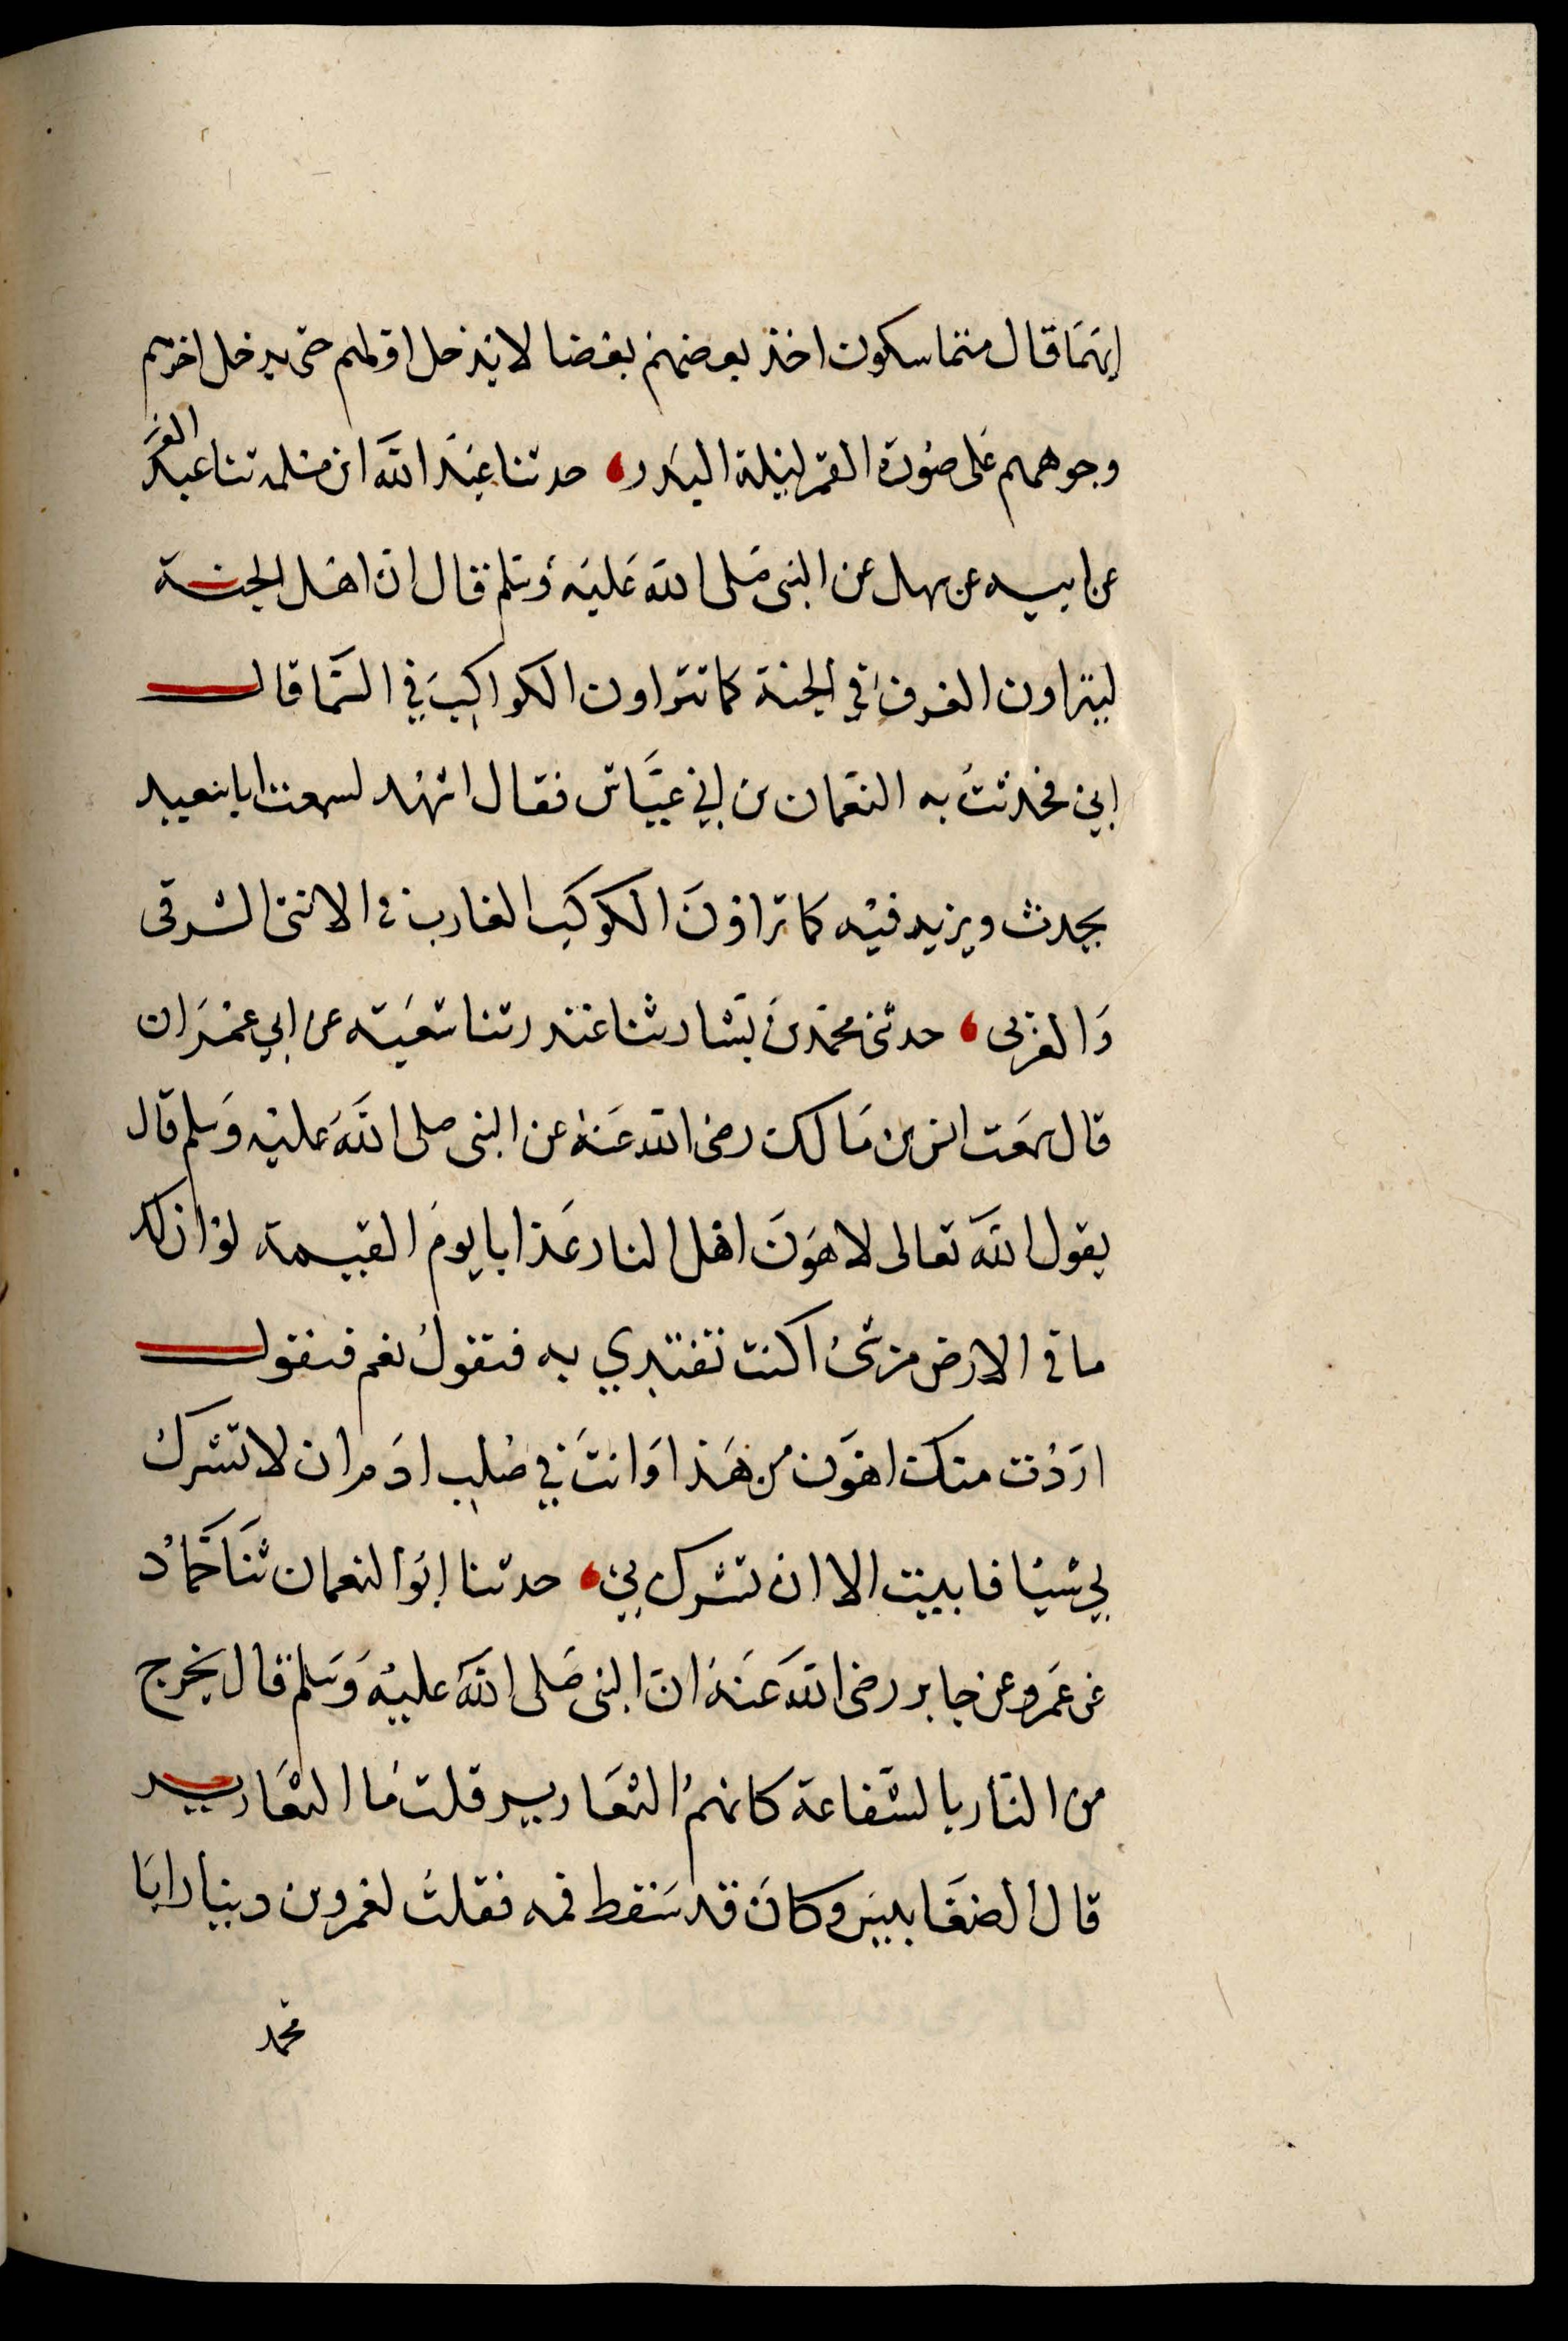 ايهما قال متماسكون اخذ بعضهم بعضا لا يدخل اولهم حتى يدخل اخرهم
وجوههم على صورة القمر ليلة البدر، حدثنا عبد الله ابن مسلمه ثنا عبد العز
عن ابيه عن سهل عن النبى صلى الله عليه وسلم قال ان اهل الجنة
ليتراون الغرف في الجنة كما تتراون الكواكب في السما قال
ابي فحدثت به النعمان بن ابي عياش فقال اشهد لسمعت ابا سعيد
يحدث ويزيد فيه كما تراون الكوكب الغارب في الافق الشرقى
والغربى، حدثنى محمد بن بشار ثنا غندر ثنا شعبة عن ابي عمران
قال سمعت انس بن مالك رضى الله عنه عن النبى صلى الله عليه وسلم قال
يقول الله تعالى لاهون اهل النار عذابا يوم القيمة لو ان لك
ما فى الارض من شئ اكنت تفتدي به فيقول نعم فيقول
اردت منك اهون من هذا وانت في صلب ادم ان لا تشرك
بي شيا فابيت الا ان تشرك بي، حدثنا ابو النعمان ثنا حماد
عن عمرو عن جابر رضى الله عنه ان النبى صلى الله عليه وسلم قال يخرج
من النار بالشفاعة كانهم الثعارير قلت ما الثعارير
قال الضغابيس وكان قد سقط فمه فقلت لعمرو بن دينار ابا
محمد